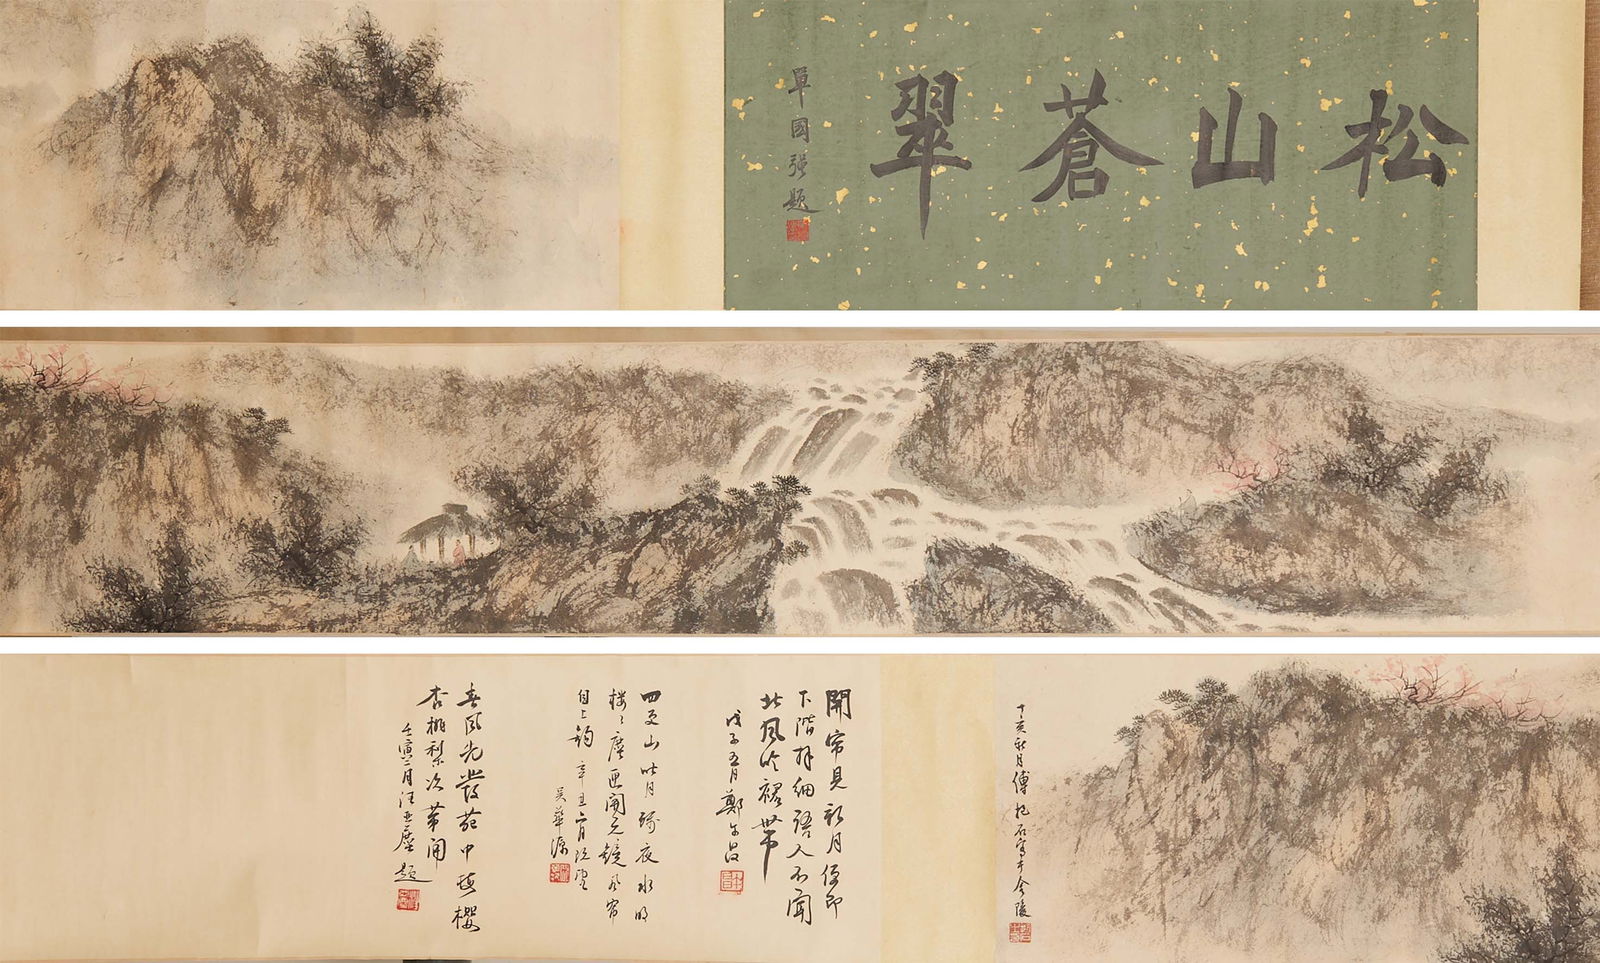 松山蒼翠
單國强題
丁亥秋月傅抱石寫于金陵
開帘見新月便即
下階拜細語人不聞
北風吹裙帶
戊子五月鄭午昌
四更山吐月殘夜水明
樓〻塵匣開元鏡風帘
自上鈎 辛丑二月既望
吳華源
春風先發苑中梅櫻
杏桃梨次第開
壬寅二月汪亞塵題